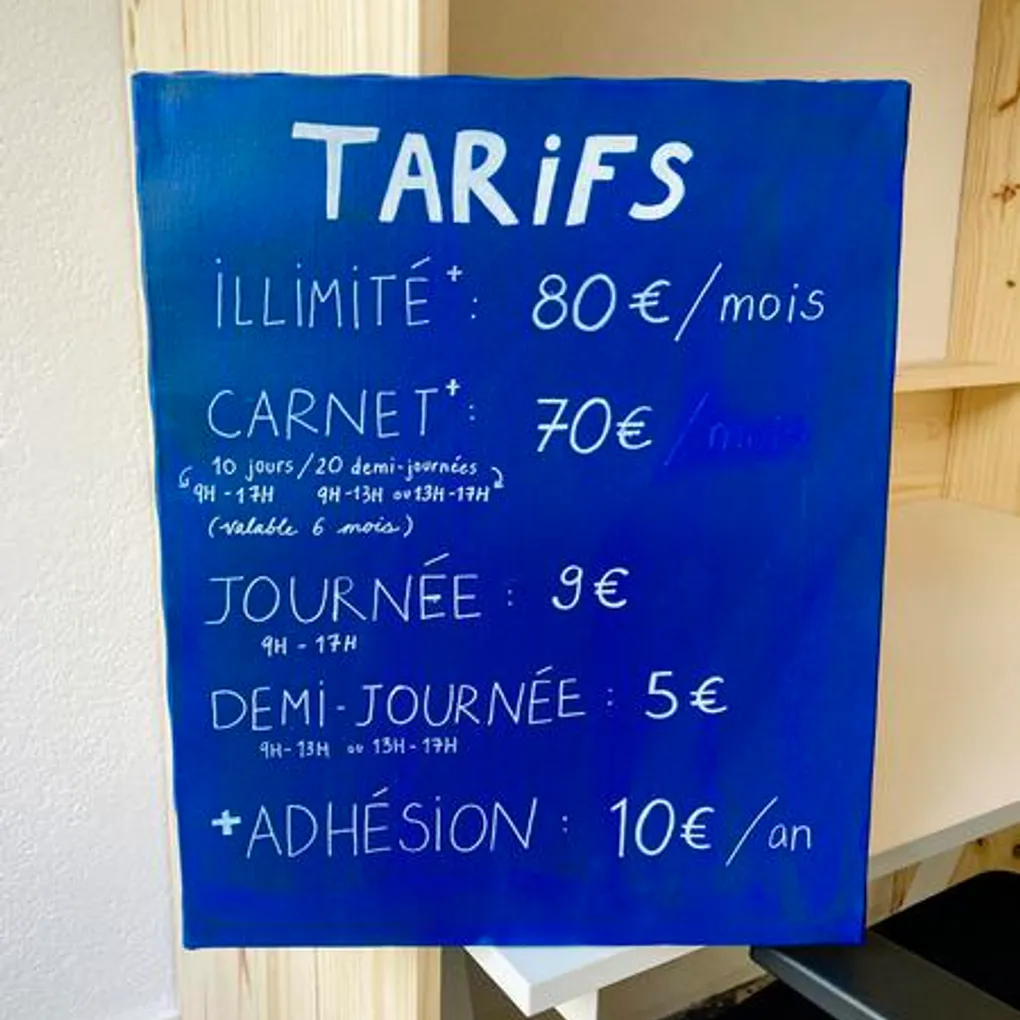 TARiFS
iLLiMiTÉ+ : 80€/mois
CARNET+ : 70€ /mois
10 jours/20 demi-journées
9H-17H 9H-13H ou 13H-17H
(valable 6 mois)
JOURNÉE : 9€
9H-17H
DEMi-JOURNÉE : 5€
9H-13H ou 13H-17H
+ADHÉSiON : 10€/an